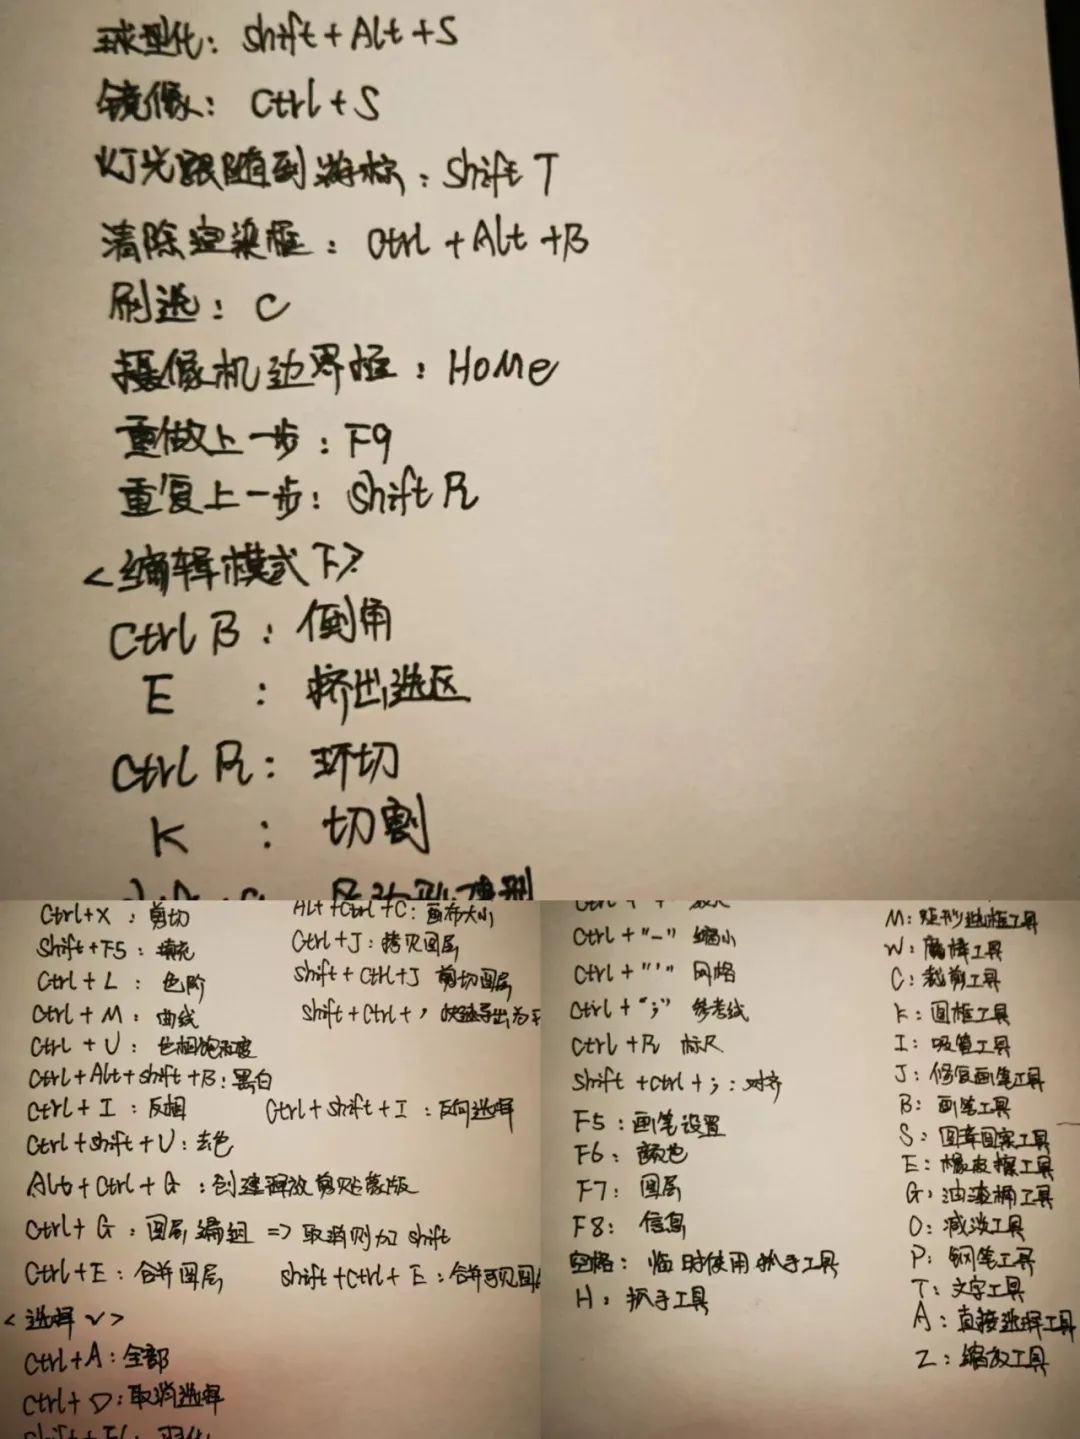 球型化：shift+Alt+S
镜像：Ctrl+S
灯光跟随到游标：shift T
清除渲染框：Ctrl+Alt+B
刷选：C
摄像机边界框：HoMe
重做上一步：F9
重复上一步：shift R
<编辑模式下>
Ctrl B：倒角
E：挤出选区
Ctrl R：环切
K：切割
Ctrl+X：剪切
Shift+F5：填充
Ctrl+L：色阶
Ctrl+M：曲线
Ctrl+U：色相饱和度
Ctrl+Alt+shift+B：黑白
Ctrl+I：反相
Ctrl+shift+I：反向选择
Ctrl+shift+U：去色
Alt+Ctrl+G：创建释放剪贴蒙版
Ctrl+G：图层编组 => 取消则加 shift
Ctrl+E：合并图层
shift+Ctrl+E：合并可见图
<选择 √>
Ctrl+A：全部
Ctrl+D：取消选择
Shift+F6：羽化
Alt+Ctrl+C：画布大小
Ctrl+J：拷贝图层
shift+Ctrl+J 剪切图层
shift+Ctrl+，快速导出为
Ctrl+"-" 缩小
Ctrl+"'" 网格
Ctrl+";" 参考线
Ctrl+R 标尺
shift+ctrl+;：对齐
F5：画笔设置
F6：颜色
F7：图层
F8：信息
空格：临时使用抓手工具
H：抓手工具
M：矩形选框工具
W：魔棒工具
C：裁剪工具
K：图框工具
I：吸管工具
J：修复画笔工具
B：画笔工具
S：图章图案工具
E：橡皮擦工具
G：油漆桶工具
O：减淡工具
P：钢笔工具
T：文字工具
A：直接选择工具
Z：缩放工具